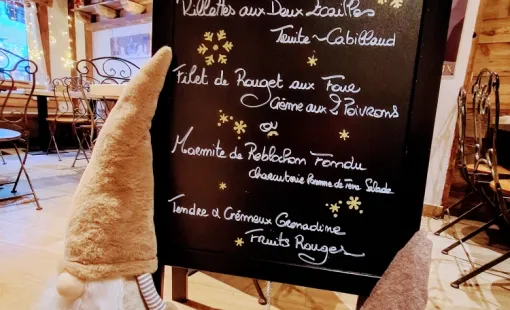 Rillettes aux Deux Écailles
Truite ~ Cabillaud
Filet de Rouget au Four
Crème aux 2 Poivrons
ou
Marmite de Reblochon Fondu
Charcuterie Pomme de Terre Salade
Tendre & Crémeux Grenadine
Fruits Rouges